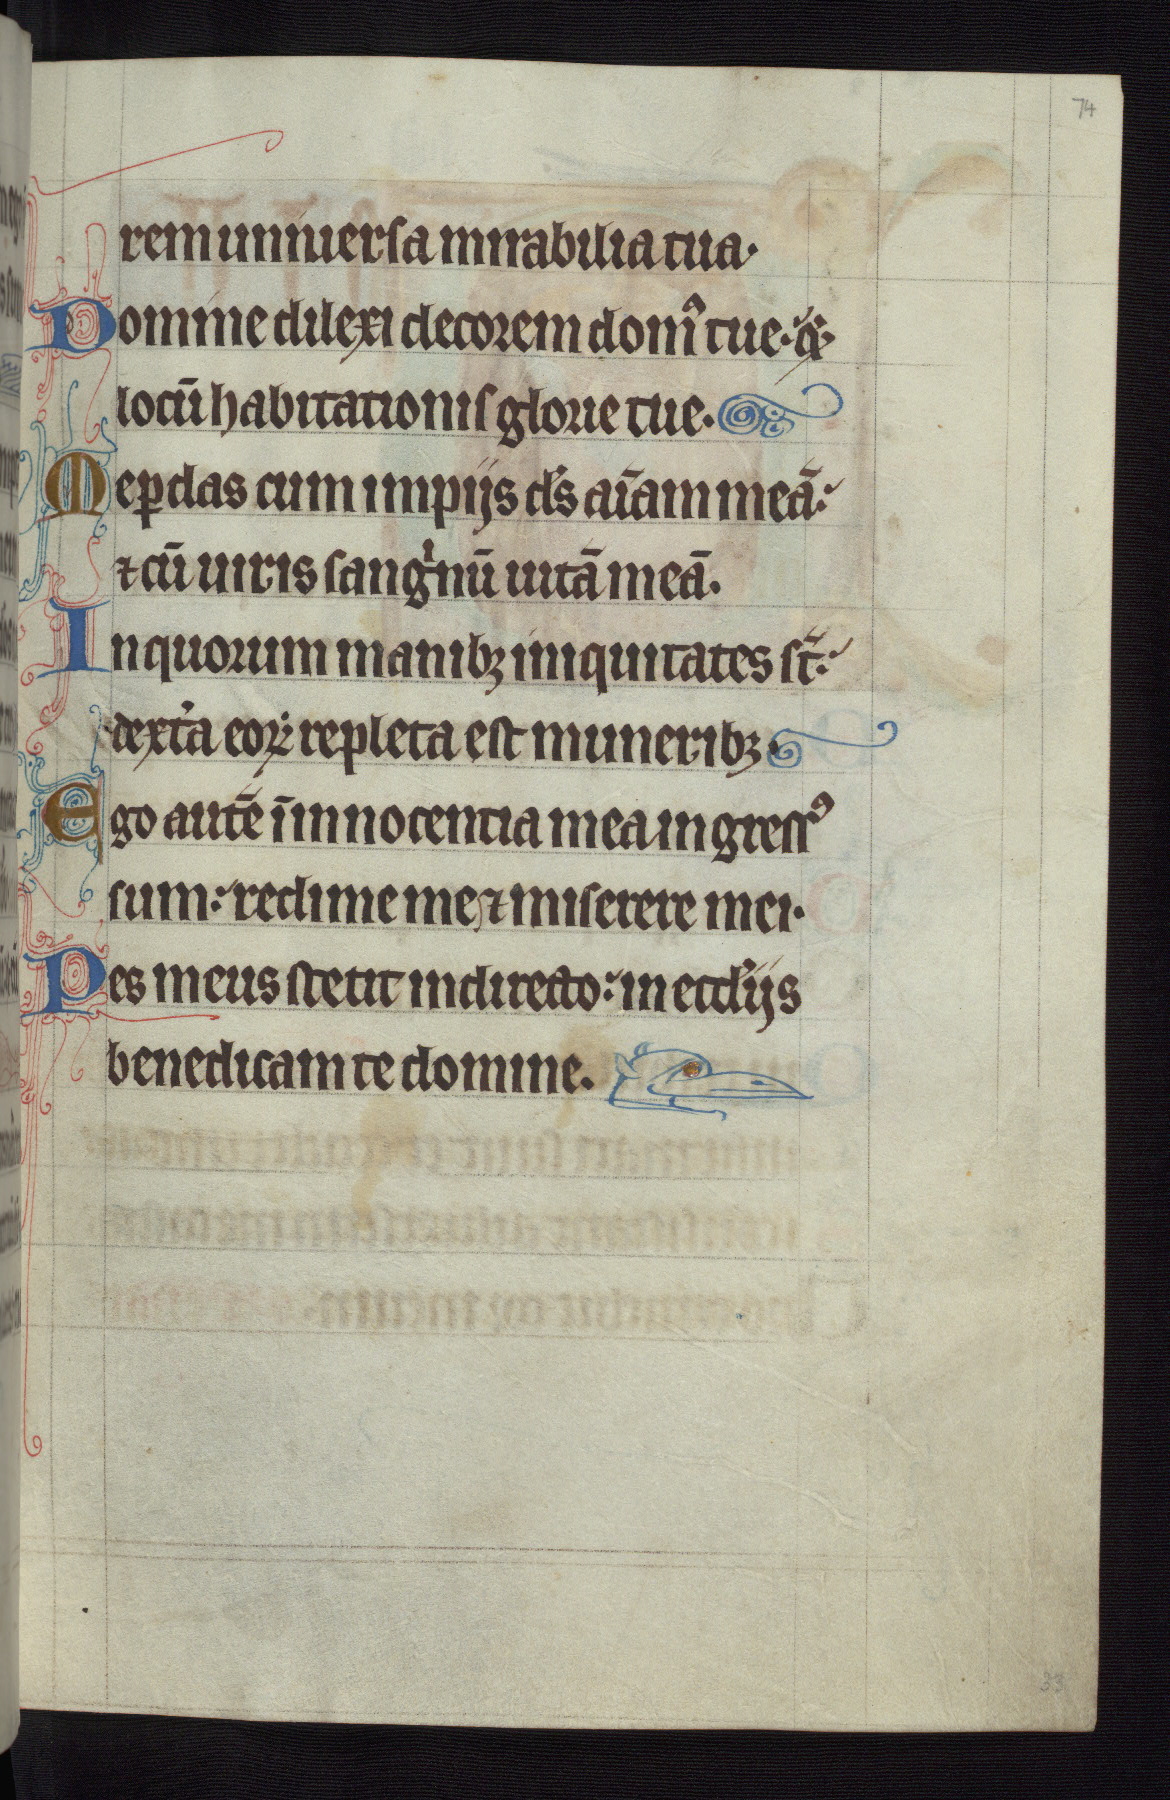 74
rem uniuersa mirabilia tua·
Domine dilexi decorem domꝰ tue·⁊
locū habitationis glorie tue·
Ne ꝑdas cum impijs ds̄ aīam meā:
⁊ cū uiris sangⁱnū uitā meā·
In quorum manibꝫ iniquitates st̄:
dext̾a eoꝝ repleta est muneribꝫ·
Ego autē ī innocentia mea ingressꝰ
sum: redime me ⁊ miserere mei·
Pes meus stetit in directo: in eccl̄ijs
benedicam te domine.
33